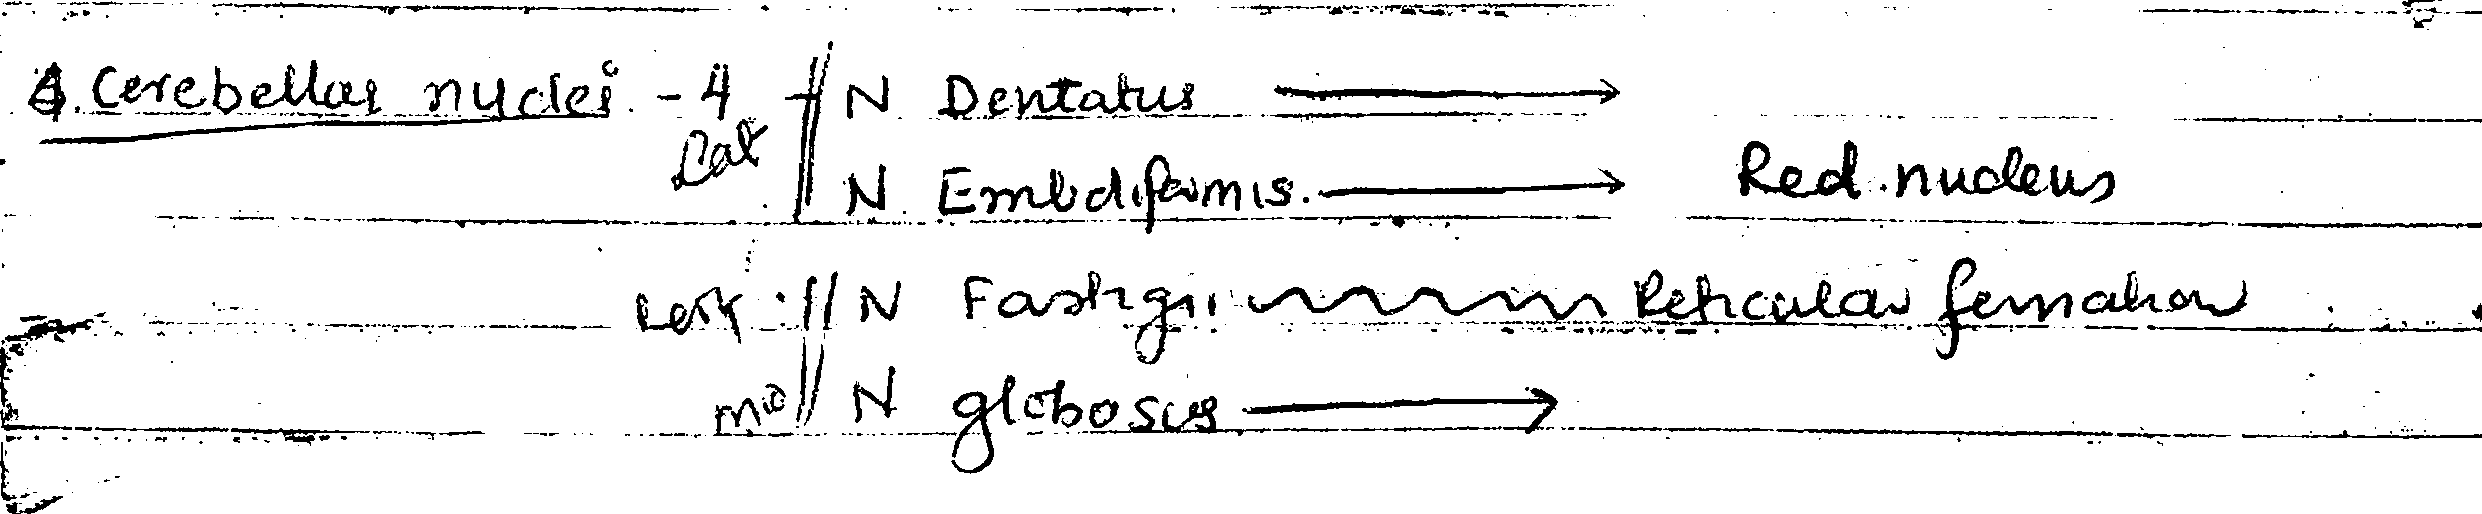 6. Cerebellar nuclei - 4 N Dentatus →
Lat N Emboliformis. → Red nucleus
N Fastigii Reticular formation
mid N globosus →